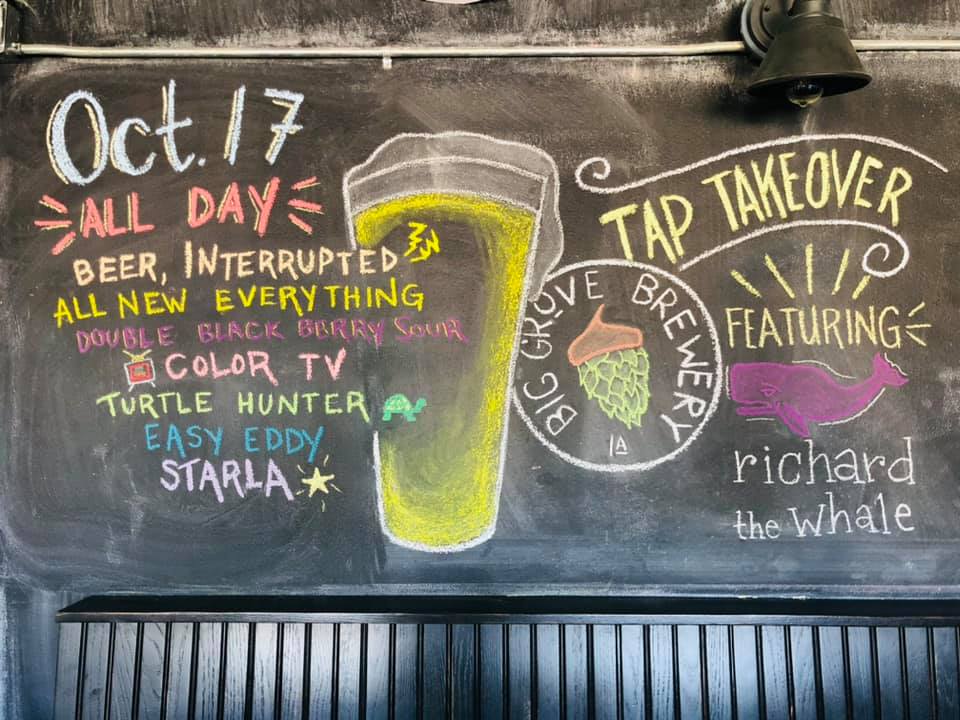 Oct. 17
ALL DAY
BEER, INTERRUPTED
ALL NEW EVERYTHING
DOUBLE BLACK BBRRY SOUR
COLOR TV
TURTLE HUNTER
EASY EDDY
STARLA
BIG GROVE BREWERY
IA
TAP TAKEOVER
FEATURING
richard
the whale